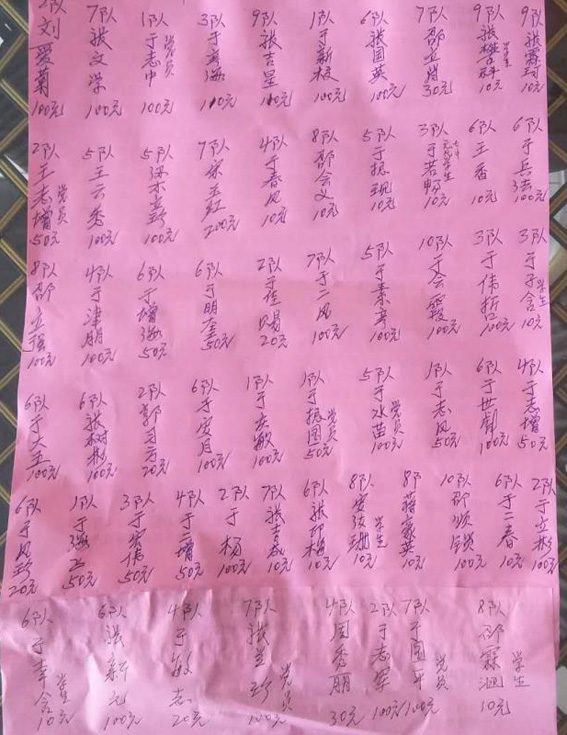 2队 刘爱菊 100元
7队 张文学 100元
1队 于志中 党员 100元
3队 于海 100元
9队 张吉星 100元
1队 于新枝 100元
6队 张国英 100元
7队 邵立月 30元
9队 张 学生 10元
9队 张霖琦 10元
2队 王志增 党员 50元
5队 王云秀 100元
5队 100元
7队 宋立红 200元
4队 于春风 10元
8队 邵会文 10元
5队 于振现 10元
3队 于若畅 学生 10元
6队 王香 10元
6队 于兵 100元
8队 邵立强 100元
4队 于津朋 100元
6队 于增海 50元
6队 于明奎 50元
2队 于佳 20元
7队 于二凤 100元
5队 于素亭 100元
10队 于会霞 100元
3队 于伟哲 100元
3队 于子含 学生 10元
6队 于大玉 100元
6队 张树彬 100元
2队 郭 20元
6队 于宝月 100元
1队 于敏 100元
1队 于振国 党员 50元
5队 于水苗 党员 100元
1队 于志凤 50元
6队 于世 100元
4队 于志增 50元
6队 于凤珍 20元
1队 于海 50元
3队 于宏伟 50元
4队 于二增 50元
2队 于杨 100元
7队 张 10元
6队 张 梅 10元
8队 安 学生 10元
8队 蒋家英 10元
10队 邵顺锁 100元
6队 于二春 10元
2队 于立彬 100元
6队 于幸含 学生 10元
6队 张新元 100元
4队 于敏志 20元
7队 张兰珍 党员 100元
4队 周秀朋 30元
2队 于志军 100元
7队 于国平 党员 100元
8队 邵霖涵 学生 10元